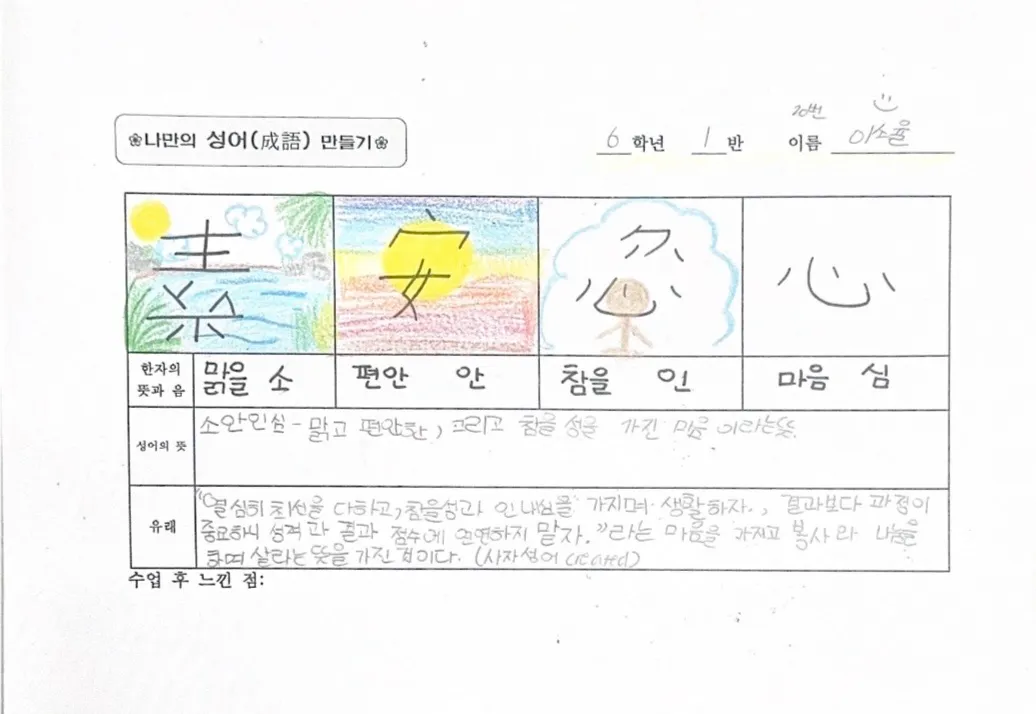 ❀나만의 성어(成語) 만들기❀
20번
6 학년 1 반 이름 이소율
安 心
한자의 뜻과 음 맑을 소 편안 안 참을 인 마음 심
성어의 뜻
소안인심 - 맑고 편안한, 그리고 참을성을 가진 마음 이라는뜻.
유래
"열심히 최선을 다하고, 참을성과 인내심을 가지며 생활하자., 결과보다 과정이
중요하니 성격과 결과 점수에 연연하지 말자."라는 마음을 가지고 와 나눔을
하며 살라는 뜻을 가진 것이다. (사자성어 created)
수업 후 느낀 점: